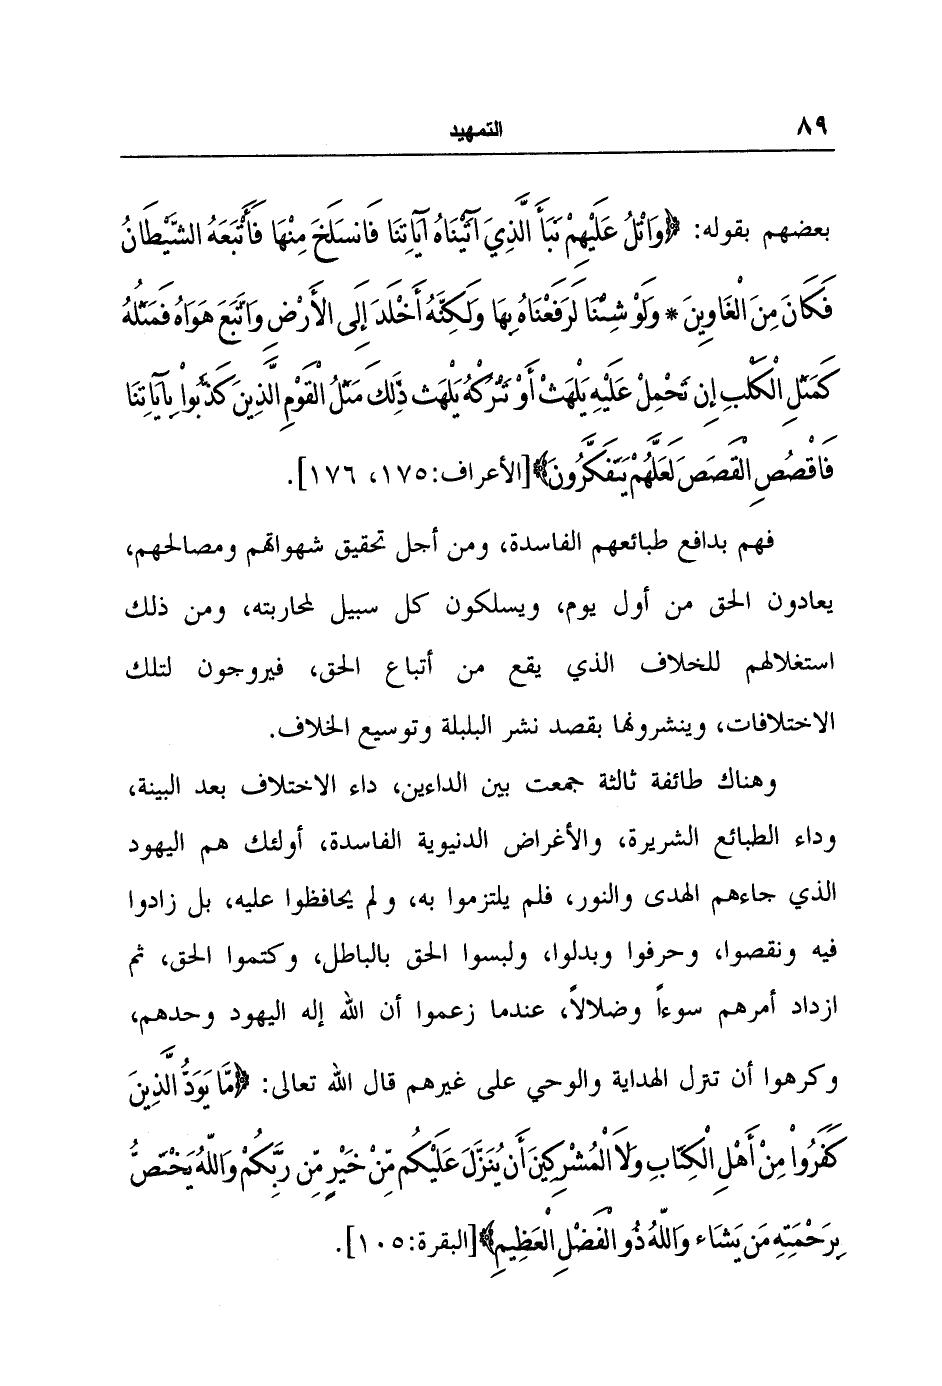 ٨٩
التمهيد
بعضهم بقوله: ﴿وَاتْلُ عَلَيْهِمْ نَبَأَ الَّذِيَ آتَيْنَاهُ آيَاتِنَا فَانسَلَخَ مِنْهَا فَأَتْبَعَهُ الشَّيْطَانُ
فَكَانَ مِنَ الْغَاوِينَ * وَلَوْ شِئْنَا لَرَفَعْنَاهُ بِهَا وَلَكِنَّهُ أَخْلَدَ إِلَى الأَرْضِ وَاتَّبَعَ هَوَاهُ فَمَثَلُهُ
كَمَثَلِ الْكَلْبِ إِن تَحْمِلْ عَلَيْهِ يَلْهَثْ أَوْ تَتْرُكْهُ يَلْهَث ذَّلِكَ مَثَلُ الْقَوْمِ الَّذِينَ كَذَّبُواْ بِآيَاتِنَا
فَاقْصُصِ الْقَصَصَ لَعَلَّهُمْ يَتَفَكَّرُونَ﴾ [الأعراف: ١٧٥، ١٧٦].
فهم بدافع طبائعهم الفاسدة، ومن أجل تحقيق شهواتهم ومصالحهم،
يعادون الحق من أول يوم، ويسلكون كل سبيل لمحاربته، ومن ذلك
استغلالهم للخلاف الذي يقع من أتباع الحق، فيروجون لتلك
الاختلافات، وينشرونها بقصد نشر البلبلة وتوسيع الخلاف.
وهناك طائفة ثالثة جمعت بين الداءين، داء الاختلاف بعد البينة،
وداء الطبائع الشريرة، والأغراض الدنيوية الفاسدة، أولئك هم اليهود
الذي جاءهم الهدى والنور، فلم يلتزموا به، ولم يحافظوا عليه، بل زادوا
فيه ونقصوا، وحرفوا وبدلوا، ولبسوا الحق بالباطل، وكتموا الحق، ثم
ازداد أمرهم سوءاً وضلالاً، عندما زعموا أن الله إله اليهود وحدهم،
وكرهوا أن تنزل الهداية والوحي على غيرهم قال الله تعالى: ﴿مَّا يَوَدُّ الَّذِينَ
كَفَرُواْ مِنْ أَهْلِ الْكِتَابِ وَلاَ الْمُشْرِكِينَ أَن يُنَزَّلَ عَلَيْكُم مِّنْ خَيْرٍ مِّن رَّبِّكُمْ وَاللّهُ يَخْتَصُّ
بِرَحْمَتِهِ مَن يَشَاء وَاللّهُ ذُو الْفَضْلِ الْعَظِيمِ﴾ [البقرة: ١٠٥].